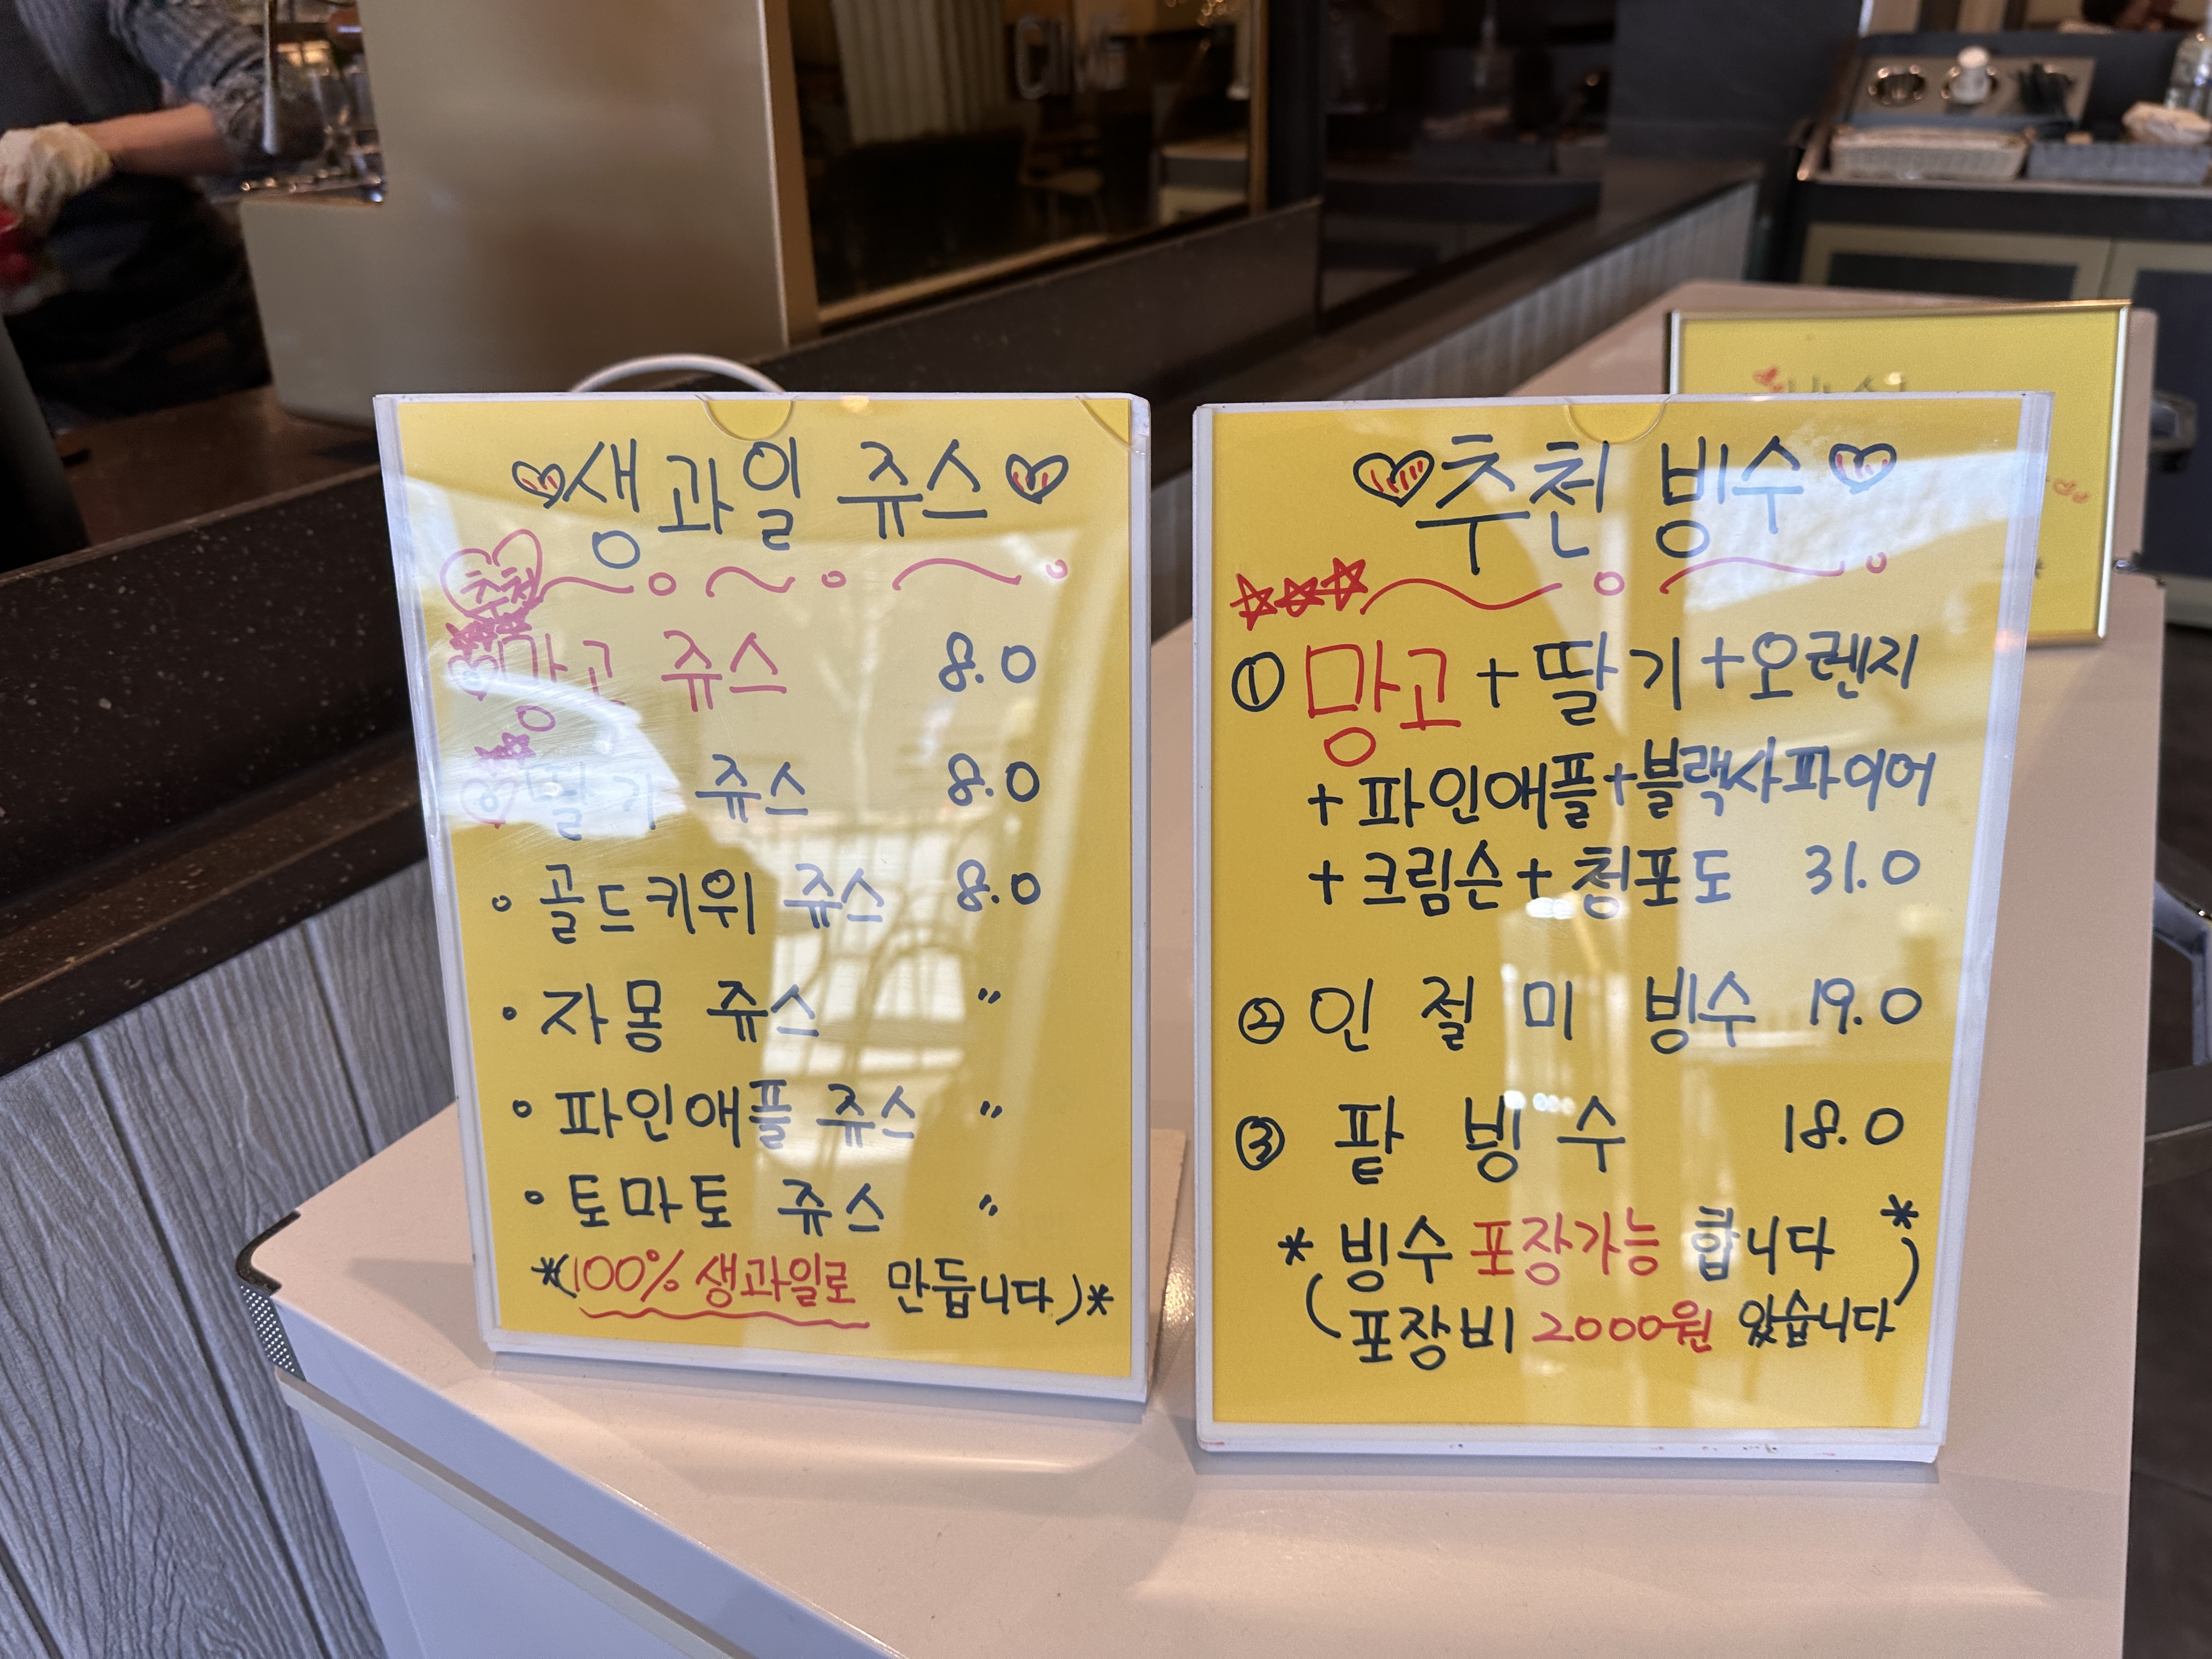 생과일 쥬스
추천
망고 쥬스 8.0
딸기 쥬스 8.0
골드키위 쥬스 8.0
자몽 쥬스 〃
파인애플 쥬스 〃
토마토 쥬스 〃
*(100% 생과일로 만듭니다)*
추천 빙수
① 망고+딸기+오렌지
+파인애플+블랙사파이어
+크림슨+청포도 31.0
② 인절미 빙수 19.0
③ 팥 빙수 18.0
* 빙수 포장가능 합니다 *
(포장비 2000원 있습니다)